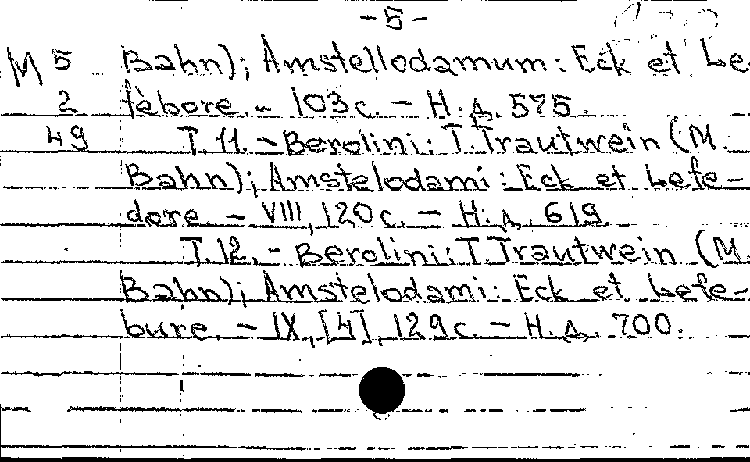 -5-
M 5 Bahn); Amstellodamum: Eck et Le
2 fèbore. - 103 c. - Н. д. 575.
49 T. 11. - Berolini: T. Trautwein (M.
Bahn); Amstelodami: Eck et Lefe-
dore. - VIII, 120 c. - Н. д. 619.
T. 12. - Berolini: T. Trautwein (M.
Bahn); Amstelodami: Eck et Lefe-
bure. - IX, [4], 129 c. - Н. д. 700.